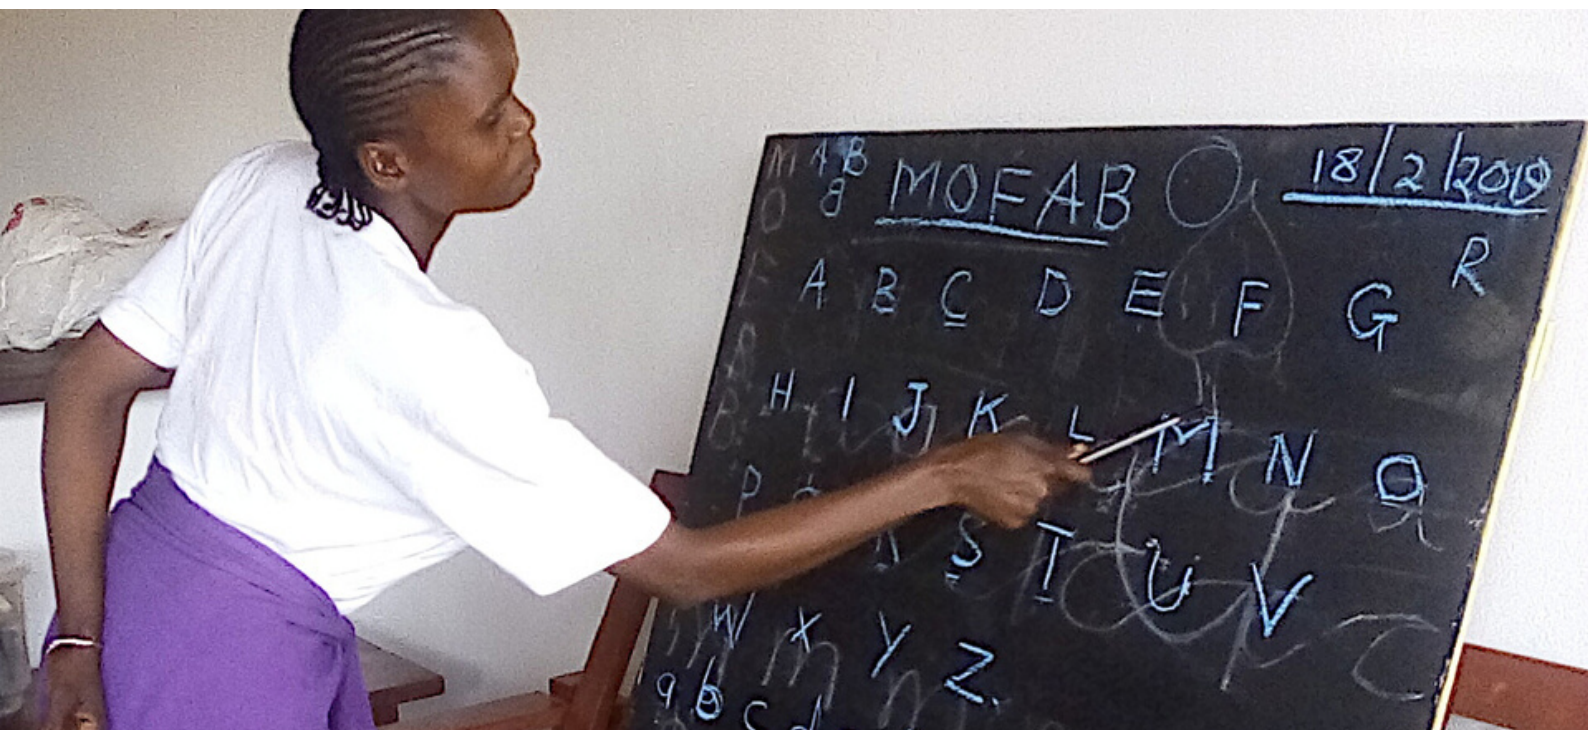 A B MOFAB 18/2/2019
R
A B C D E F G
H I J K L M N O
P
S T U V
W X Y Z
a b c d